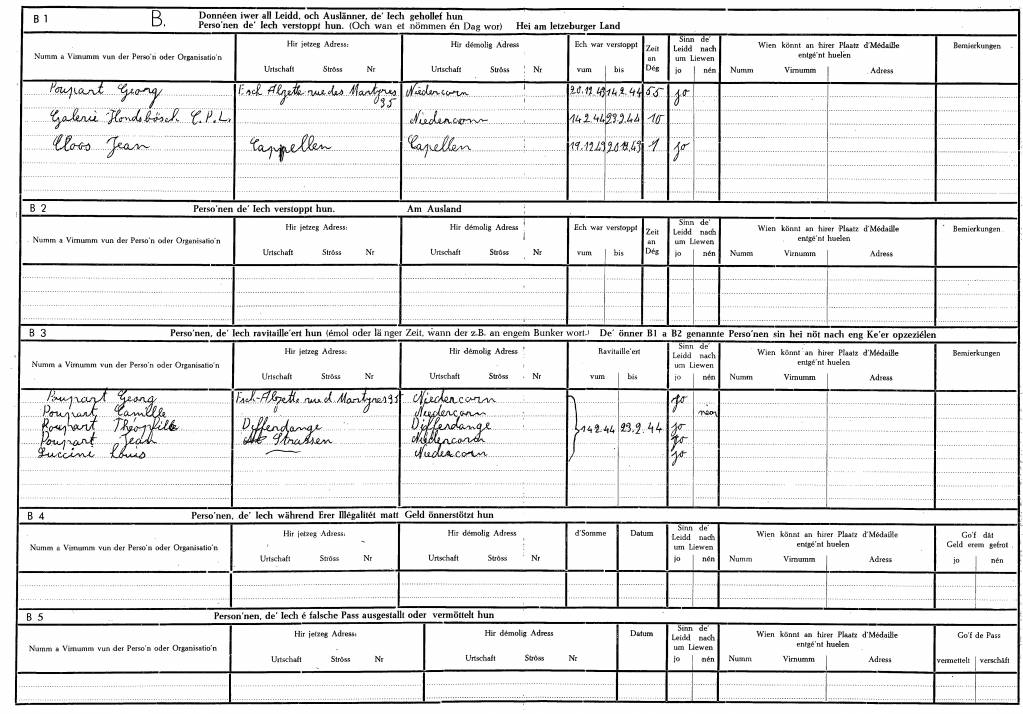 B 1 B. Donnéen iwer all Leidd, och Auslänner, de' Iech gehollef hun
Perso'nen de' Iech verstoppt hun. (Och wan et nömmen én Dag wor) Hei am letzeburger Land
Numm a Virnumm vun der Perso'n oder Organisatio'n
Hir jetzeg Adress:
Urtschaft Ströss Nr
Hir démolig Adress
Urtschaft Ströss Nr
Ech war verstoppt
vum bis
Zeit an Dég
Sinn de' Leidd nach um Liewen
jo nén
Wien könnt an hirer Plaatz d'Médaille entgé'nt huelen
Numm Virnumm Adress
Bemierkungen
Poupart Georg Esch Alzette rue des Martyres 95 Niedercorn 20.12.43 14.2.44 55 jo
Galerie Hondsbösch C.P.L. Niedercorn 14.2.44 23.2.44 10
Cloos Jean Cappellen Capellen 19.12.43 20.12.43 1 jo
B 2 Perso'nen de' Iech verstoppt hun. Am Ausland
Numm a Virnumm vun der Perso'n oder Organisatio'n
Hir jetzeg Adress:
Urtschaft Ströss Nr
Hir démolig Adress
Urtschaft Ströss Nr
Ech war verstoppt
vum bis
Zeit an Dég
Sinn de' Leidd nach um Liewen
jo nén
Wien könnt an hirer Plaatz d'Médaille entgé'nt huelen
Numm Virnumm Adress
Bemierkungen
B 3 Perso'nen, de' Iech ravitaille'ert hun (émol oder länger Zeit, wann der z.B. an engem Bunker wort.) De' önner B1 a B2 genannte Perso'nen sin hei nöt nach eng Ke'er opzeziélen
Numm a Virnumm vun der Perso'n oder Organisatio'n
Hir jetzeg Adress:
Urtschaft Ströss Nr
Hir démolig Adress
Urtschaft Ströss Nr
Ravitaille'ert
vum bis
Sinn de' Leidd nach um Liewen
jo nén
Wien könnt an hirer Plaatz d'Médaille entgé'nt huelen
Numm Virnumm Adress
Bemierkungen
Poupart Georg Esch-Alzette rue d Martyres 95 Niedercorn jo
Poupart Camille Niedercorn nén
Poupart Théophile Differdange Differdange 14.2.44 23.2.44 jo
Poupart Jean Strassen Niedercorn jo
Luccini Louis Niedercorn jo
B 4 Perso'nen, de' Iech während Erer Illégalitét matt Geld önnerstötzt hun
Numm a Virnumm vun der Perso'n oder Organisatio'n
Hir jetzeg Adress:
Urtschaft Ströss Nr
Hir démolig Adress
Urtschaft Ströss Nr
d'Somme
Datum
Sinn de' Leidd nach um Liewen
jo nén
Wien könnt an hirer Plaatz d'Médaille entgé'nt huelen
Numm Virnumm Adress
Go'f dât Geld erem gefrot
jo nén
B 5 Person'nen, de' Iech é falsche Pass ausgestallt oder vermöttelt hun
Numm a Virnumm vun der Perso'n oder Organisatio'n
Hir jetzeg Adress:
Urtschaft Ströss Nr
Hir démolig Adress
Urtschaft Ströss Nr
Datum
Sinn de' Leidd nach um Liewen
jo nén
Wien könnt an hirer Plaatz d'Médaille entgé'nt huelen
Numm Virnumm Adress
Go'f de Pass
vermettelt verschäft